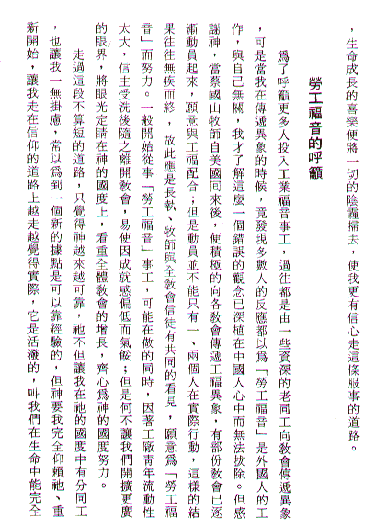 ，生命成長的喜樂便將一切的陰霾掃去，使我更有信心走這條服事的道路。
勞工福音的呼籲
為了呼籲更多人投入工業福音事工，過往都是由一些資深的老同工向教會傳遞異象
，可是當我在傳遞異象的時候，竟發現多數人的反應都以為「勞工福音」是外國人的工
作，與自己無關，我才了解這麼一個錯誤的觀念已深植在中國人心中而無法拔除。但感
謝神，當蔡國山牧師自美國回來後，便積極的向各教會傳遞工福異象，有部份教會已逐
漸動員起來，願意與工福配合；但是動員並不能只有一、兩個人在實際行動，這樣的結
果往往無疾而終，故此應是長執、牧師與全教會信徒有共同的看見，願意為「勞工福
音」而努力。一般開始從事「勞工福音」事工，可能在做的同時，因著工廠青年流動性
太大，信主受洗後隨之離開教會，易使因成就感偏低而氣餒；但是何不讓我們開擴更廣
的眼界，將眼光定睛在神的國度上，看重全體教會的增長，齊心為神的國度努力。
走過這段不算短的道路，只覺得神越來越可靠，祂不但讓我在祂的國度中有分同工
，也讓我一無掛慮，常以為到一個新的據點是可以靠經驗的，但神要我完全仰賴祂、重
新開始，讓我走在信仰的道路上越走越覺得實際，它是活潑的，叫我們在生命中能完全